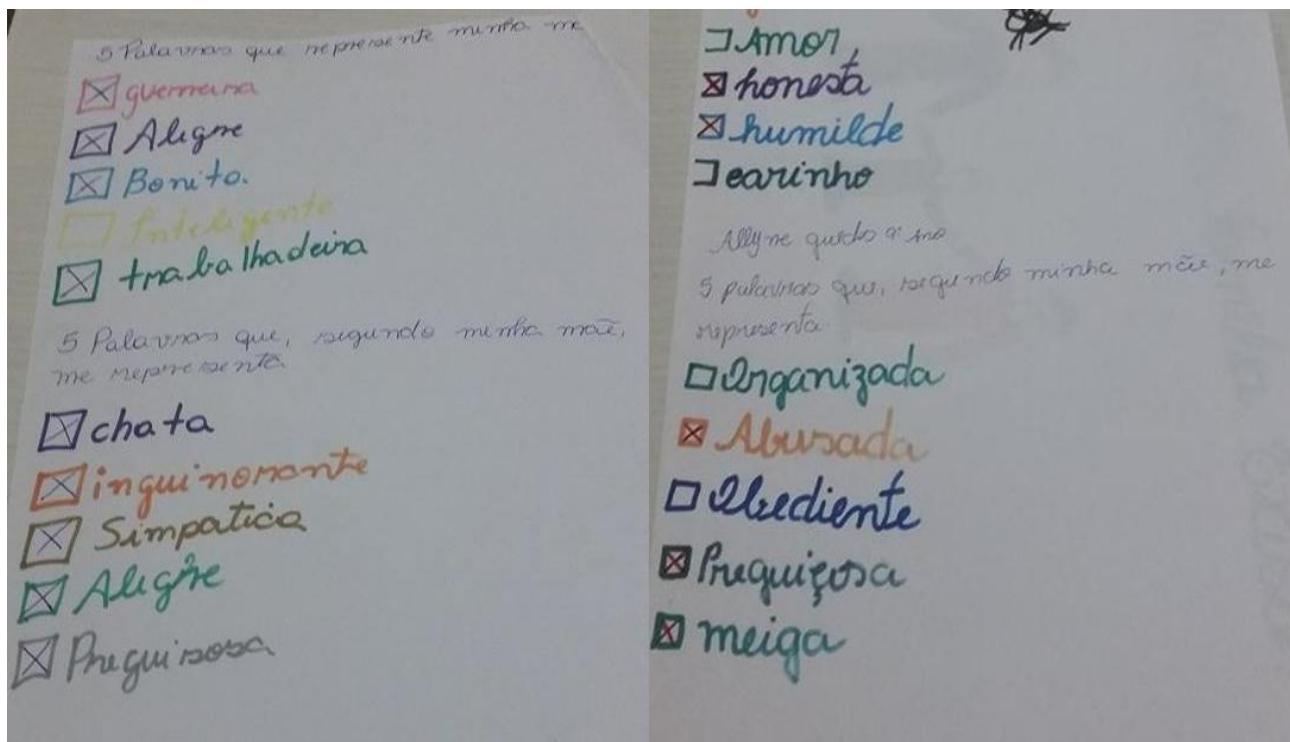 5 Palavras que represente minha me
guerreira
Alegre
Bonito.
Inteligente
trabalhadeira
5 Palavras que, segundo minha mãe,
me represente
chata
inguinorante
Simpatica
Alegre
Preguisosa
Amor,
honesta
humilde
carinho
Allyne
5 palavras que, segundo minha mãe, me
representa
Organizada
Abusada
Obediente
Preguiçosa
meiga